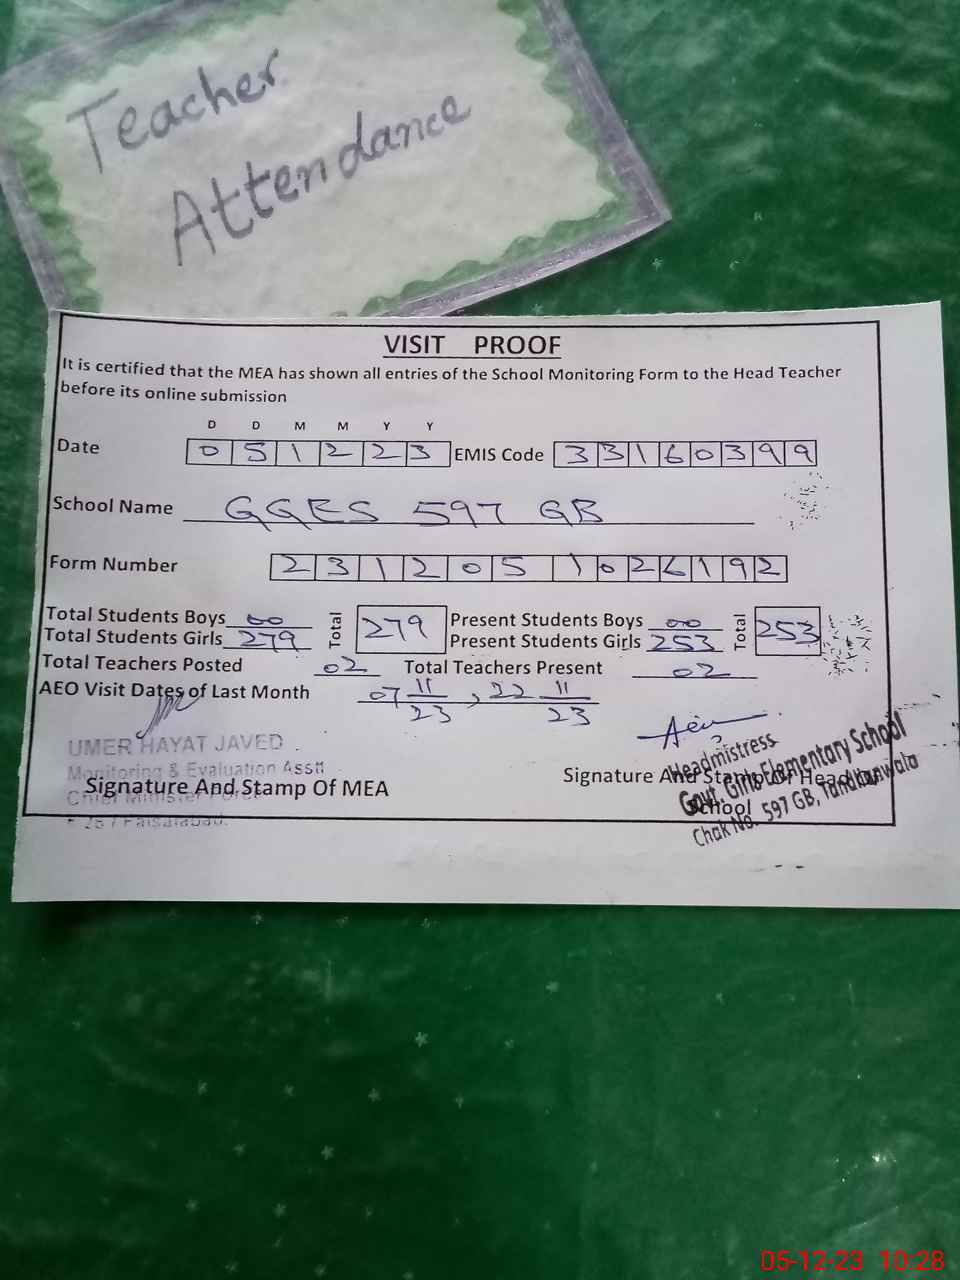 Teacher
Attendance
VISIT PROOF
It is certified that the MEA has shown all entries of the School Monitoring Form to the Head Teacher
before its online submission
D D M M Y Y
Date 0 5 1 2 2 3 EMIS Code 3 3 1 6 0 3 9 9
School Name GGES 597 GB
Form Number 2 3 1 2 0 5 1 0 2 6 1 9 2
Total Students Boys 00 Total 279 Present Students Boys 00 Total 253
Total Students Girls 279 Present Students Girls 253
Total Teachers Posted 02 Total Teachers Present 02
AEO Visit Dates of Last Month 07 11/23, 22 11/23
UMER HAYAT JAVED
Monitoring & Evaluation Asstt
Chief Minister Force
Faisalabad.
Signature And Stamp Of MEA
Signature And Stamp Of Head
School
Headmistress
Govt. Girls Elementary School
Chak No. 597 GB, Tandlianwala
05-12-23 10:28